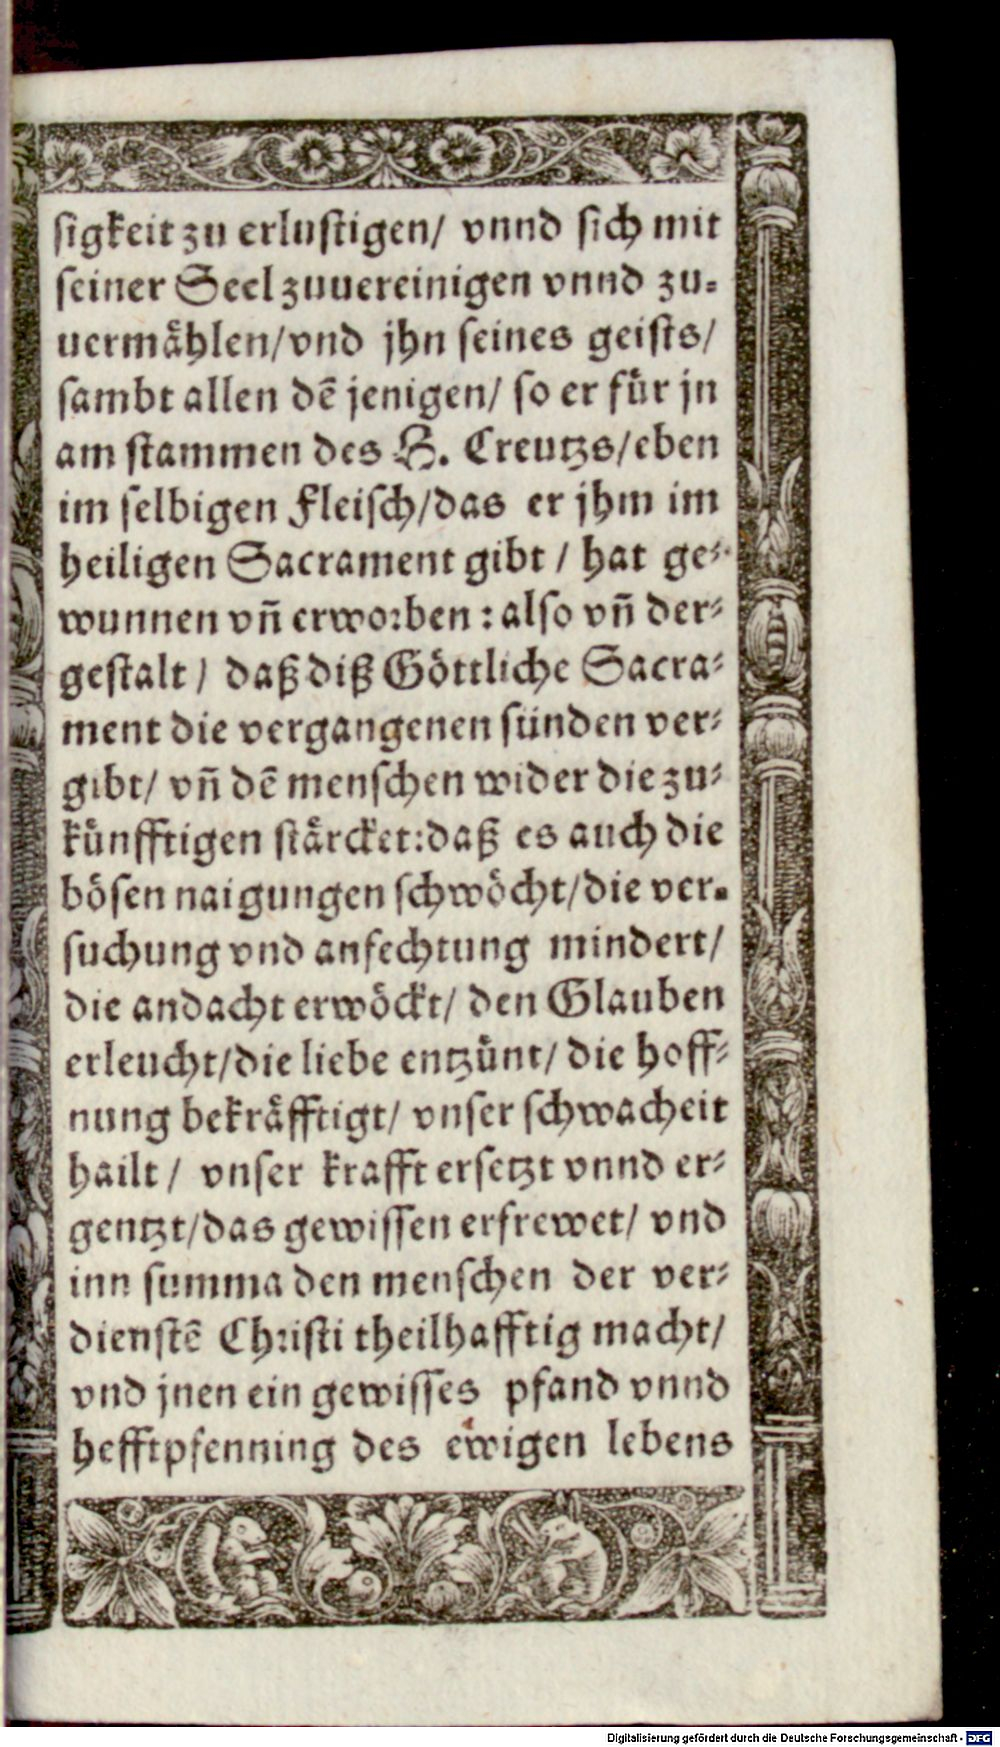 sigkeit zu erlustigen/ vnnd sich mit
seiner Seel zuuereinigen vnnd zu-
uermåhlen/vnd jhn seines geists/
sambt allen dē jenigen/ so er fůr jn
am stammen des H. Creutzs/eben
im selbigen Fleisch/das er jhm im
heiligen Sacrament gibt / hat ge-
wunnen vñ erworben : also vñ der-
gestalt / daß diß Göttliche Sacra-
ment die vergangenen sünden ver-
gibt/ vñ dē menschen wider die zu-
kůnfftigen stårcket:daß es auch die
bösen naigungen schwöcht/die ver-
suchung vnd anfechtung mindert/
die andacht erwöckt/ den Glauben
erleucht/die liebe entzůnt/ die hoff-
nung bekråfftigt/ vnser schwacheit
hailt / vnser krafft ersetzt vnnd er-
gentzt/das gewissen erfrewet/ vnd
inn summa den menschen der ver-
dienstē Christi theilhafftig macht/
vnd jnen ein gewisses pfand vnnd
hefftpfenning des ewigen lebens
Digitalisierung gefördert durch die Deutsche Forschungsgemeinschaft - DFG